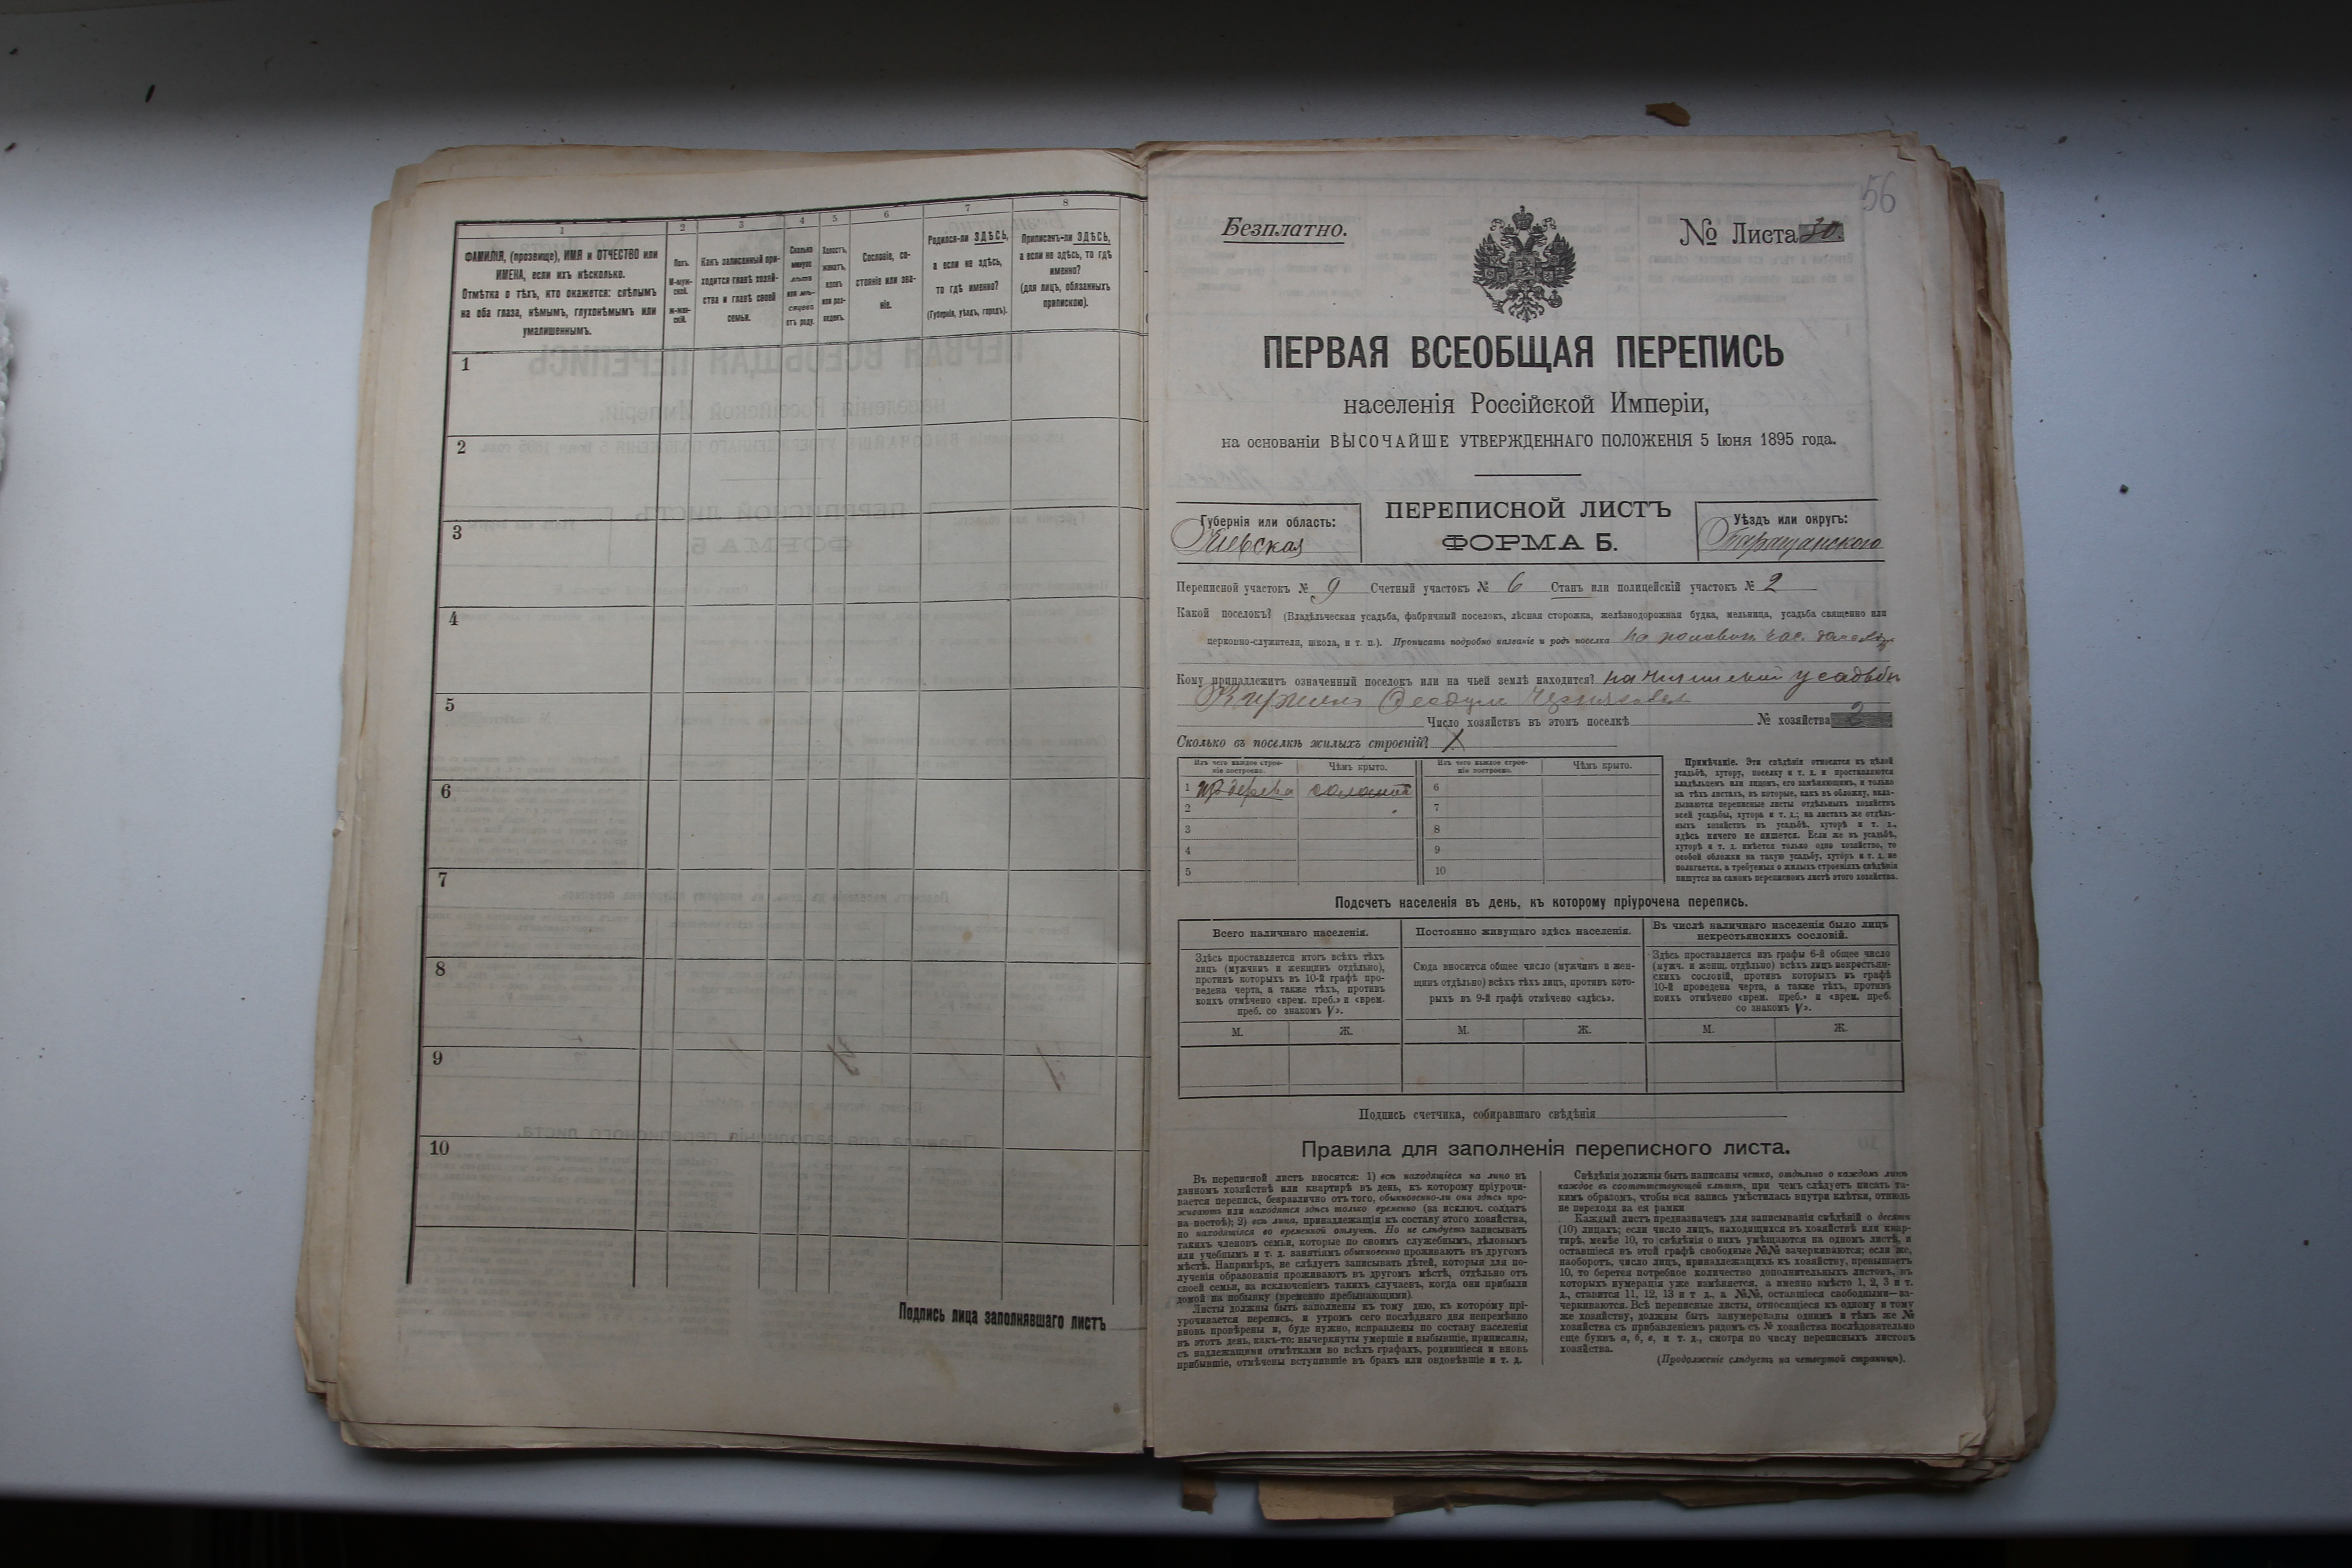 1
2
3
4
5
6
7
8
ФАМИЛІЯ, (прозвище), ИМЯ и ОТЧЕСТВО или
ИМЕНА, если ихъ нѣсколько.
Отмѣтка о тѣхъ, кто окажется: слѣпымъ
на оба глаза, нѣмымъ, глухонѣмымъ или
умалишеннымъ.
Полъ.
М-муж-
ской.
ж-жен-
скій.
Какъ записанный при-
ходится главѣ хозяй-
ства и главѣ своей
семьи.
Сколько
минуло
лѣтъ
или мѣ-
сяцевъ
отъ роду.
Холостъ,
женатъ,
вдовъ
или раз-
веденъ.
Сословіе, со-
стояніе или зва-
ніе.
Родился-ли ЗДѢСЬ,
а если не здѣсь,
то гдѣ именно?
(Губернія, уѣздъ, городъ).
Приписанъ-ли ЗДѢСЬ,
а если не здѣсь, то гдѣ
именно?
(для лицъ, обязанныхъ
припискою).
1
2
3
4
5
6
7
8
9
10
Подпись лица заполнявшаго листъ
56
Безплатно.
№ Листа 30.
ПЕРВАЯ ВСЕОБЩАЯ ПЕРЕПИСЬ
населенія Россійской Имперіи,
на основаніи ВЫСОЧАЙШЕ УТВЕРЖДЕННАГО ПОЛОЖЕНІЯ 5 Іюня 1895 года.
Губернія или область:
Кіевская
ПЕРЕПИСНОЙ ЛИСТЪ
ФОРМА Б.
Уѣздъ или округъ:
Таращанскаго
Переписной участокъ № 9 Счетный участокъ № 6 Станъ или полицейскій участокъ № 2
Какой поселокъ? (Владѣльческая усадьба, фабричный поселокъ, лѣсная сторожка, желѣзнодорожная будка, мельница, усадьба священно или
церковно-служителя, школа, и т. п.). Прописать подробно названіе и родъ поселка
Кому принадлежитъ означенный поселокъ или на чьей землѣ находится? усадьбѣ
Число хозяйствъ въ этомъ поселкѣ № хозяйства 2
Сколько въ поселкѣ жилыхъ строеній?
Изъ чего каждое строе-
ніе построено.
Чѣмъ крыто.
Изъ чего каждое строе-
ніе построено.
Чѣмъ крыто.
1 изъ дерева соломой 6
2 7
3 8
4 9
5 10
Примѣчаніе. Эти свѣдѣнія относятся къ цѣлой
усадьбѣ, хутору, поселку и т. д. и проставляются
владѣльцемъ или лицомъ, его замѣняющимъ, и только
на тѣхъ листахъ, въ которые, какъ въ обложку, вкла-
дываются переписные листы отдѣльныхъ хозяйствъ
всей усадьбы, хутора и т. д.; на листахъ же отдѣль-
ныхъ хозяйствъ въ усадьбѣ, хуторѣ и т. д.,
здѣсь ничего не пишется. Если же въ усадьбѣ,
хуторѣ и т. д. имѣется только одно хозяйство, то
особой обложки на такую усадьбу, хуторъ и т. д. не
полагается, а требуемыя о жилыхъ строеніяхъ свѣдѣнія
пишутся на самомъ переписномъ листѣ этого хозяйства.
Подсчетъ населенія въ день, къ которому пріурочена перепись.
Всего наличнаго населенія.
Здѣсь проставляется итогъ всѣхъ тѣхъ
лицъ (мужчинъ и женщинъ отдѣльно),
противъ которыхъ въ 10-й графѣ про-
ведена черта, а также тѣхъ, противъ
коихъ отмѣчено «врем. преб.» и «врем.
преб. со знакомъ V».
Постоянно живущаго здѣсь населенія.
Сюда вносится общее число (мужчинъ и жен-
щинъ отдѣльно) всѣхъ тѣхъ лицъ, противъ кото-
рыхъ въ 9-й графѣ отмѣчено «здѣсь».
Въ числѣ наличнаго населенія было лицъ
некрестьянскихъ сословій.
Здѣсь проставляется изъ графы 6-й общее число
(мужч. и женщ. отдѣльно) всѣхъ лицъ некрестьян-
скихъ сословій, противъ которыхъ въ графѣ
10-й проведена черта, а также тѣхъ, противъ
коихъ отмѣчено «врем. преб.» и «врем. преб.
со знакомъ V».
М. Ж. М. Ж. М. Ж.
Подпись счетчика, собиравшаго свѣдѣнія
Правила для заполненія переписного листа.
Въ переписной листъ вносятся: 1) всѣ находящіеся на лицо въ
данномъ хозяйствѣ или квартирѣ въ день, къ которому пріурочи-
вается перепись, безразлично отъ того, обыкновенно-ли они здѣсь про-
живаютъ или находятся здѣсь только временно (за исключ. солдатъ
на постоѣ); 2) всѣ лица, принадлежащія къ составу этого хозяйства,
но находящіяся во временной отлучкѣ. Но не слѣдуетъ записывать
такихъ членовъ семьи, которые по своимъ служебнымъ, дѣловымъ
или учебнымъ и т. д. занятіямъ обыкновенно проживаютъ въ другомъ
мѣстѣ. Напримѣръ, не слѣдуетъ записывать дѣтей, которыя для по-
лученія образованія проживаютъ въ другомъ мѣстѣ, отдѣльно отъ
своей семьи, за исключеніемъ такихъ случаевъ, когда они прибыли
домой на побывку (временно пребывающими).
Листы должны быть заполнены къ тому дню, къ которому прі-
урочивается перепись, и утромъ сего послѣдняго дня непремѣнно
вновь провѣрены и, буде нужно, исправлены по составу населенія
въ этотъ день, какъ-то: вычеркнуты умершіе и выбывшіе, приписаны,
съ надлежащими отмѣтками во всѣхъ графахъ, родившіеся и вновь
прибывшіе, отмѣчены вступившіе въ бракъ или овдовѣвшіе и т. д.
Свѣдѣнія должны быть написаны четко, отдѣльно о каждомъ лицѣ
каждое въ соотвѣтствующей клѣткѣ, при чемъ слѣдуетъ писать та-
кимъ образомъ, чтобы вся запись умѣстилась внутри клѣтки, отнюдь
не переходя за ея рамки
Каждый листъ предназначенъ для записыванія свѣдѣній о десяти
(10) лицахъ; если число лицъ, находящихся въ хозяйствѣ или квар-
тирѣ, менѣе 10, то свѣдѣнія о нихъ умѣщаются на одномъ листѣ, а
оставшіеся въ этой графѣ свободные №№ зачеркиваются; если же,
наоборотъ, число лицъ, принадлежащихъ къ хозяйству, превышаетъ
10, то берется потребное количество дополнительныхъ листовъ, въ
которыхъ нумерація уже измѣняется, а именно вмѣсто 1, 2, 3 и т.
д., ставится 11, 12, 13 и т д., а №№, оставшіеся свободными—за-
черкиваются. Всѣ переписные листы, относящіеся къ одному и тому
же хозяйству, должны быть занумерованы однимъ и тѣмъ же №
хозяйства съ прибавленіемъ рядомъ съ № хозяйства послѣдовательно
еще буквъ а, б, в, и т. д., смотря по числу переписныхъ листовъ
хозяйства.
(Продолженіе слѣдуетъ на четвертой страницѣ).